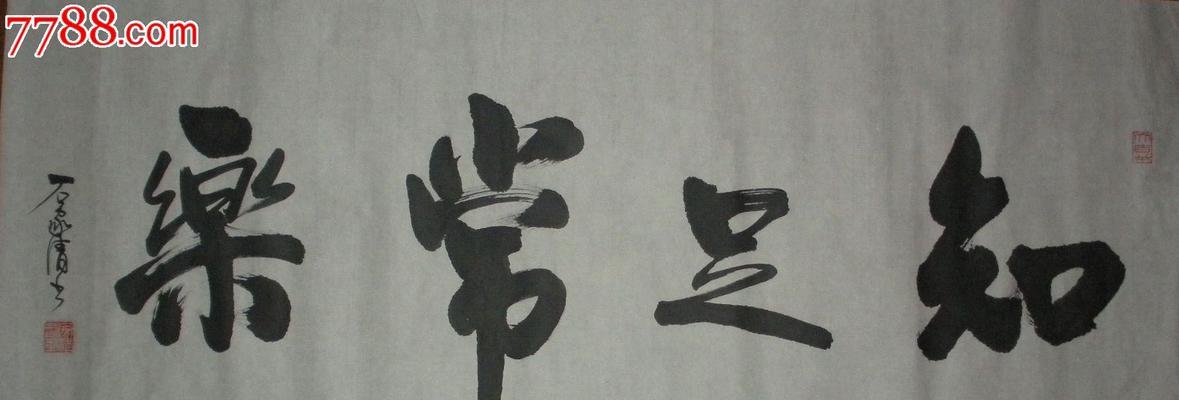 7788.com
知足常樂